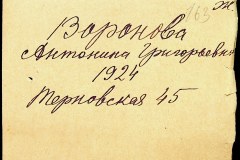 163
Ж.
Воронова
Антонина Григорьевна
1924
Терновская 45